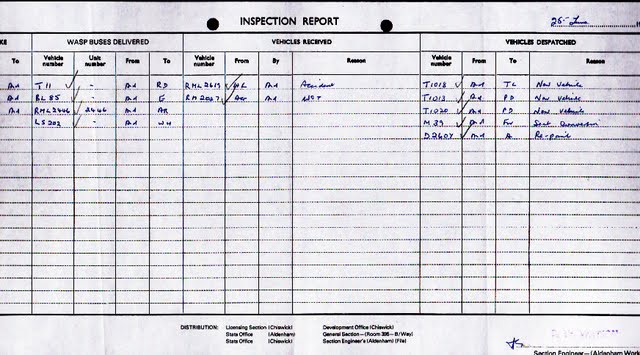 INSPECTION REPORT
25th June
KE WASP BUSES DELIVERED VEHICLES RECEIVED VEHICLES DESPATCHED
To Vehicle number Unit number From To Vehicle number From By Reason Vehicle number From To Reason
Ad T 11 - Ad RD RML2619 HL Ad Accident T1018 Ad TL New Vehicle
Ad BL 85 - Ad E RM2037 Ad WST T1013 Ad PD New Vehicle
Ad RML2446 2446 Ad AR T1020 Ad PD New Vehicle
LS202 - Ad WH M 39 Ad FW Seat Conversion
D2607 Ad A Re-panel
DISTRIBUTION: Licensing Section (Chiswick) Development Office (Chiswick)
Stats Office (Aldenham) General Section—(Room 395—B/Way)
Stats Office (Chiswick) Section Engineer's (Aldenham) (File)
Section Engineer—(Aldenham Work